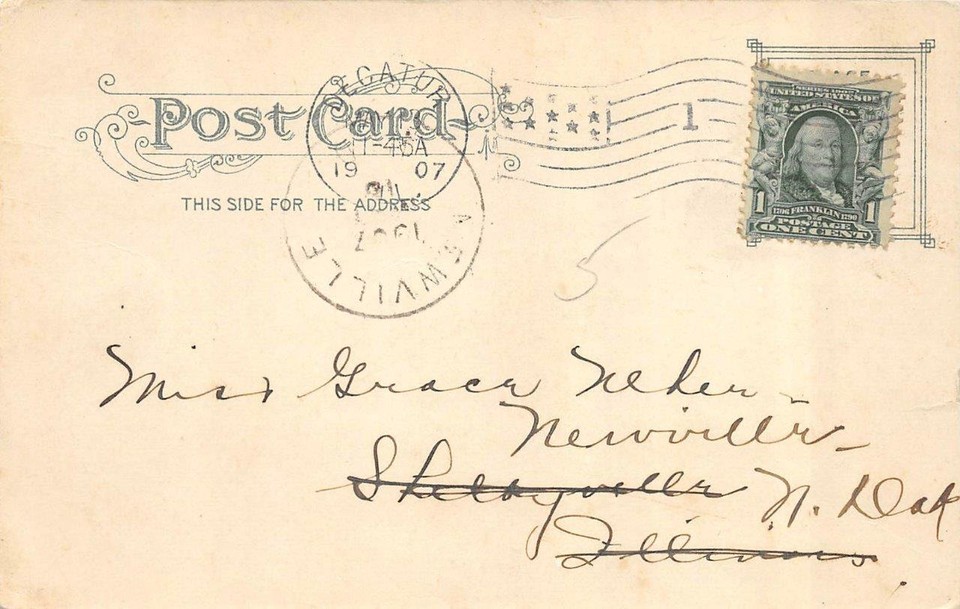 DECATUR
POST CARD
11-45A
19 07
1
THIS SIDE FOR THE ADDRESS
1907
NEWVILLE
SERIES 1902
UNITED STATES OF
AMERICA
1 1706 FRANKLIN 1790 1
POSTAGE
ONE CENT
5
Miss Grace Neher
Newville
Shelbyville N. Dak
Illinois